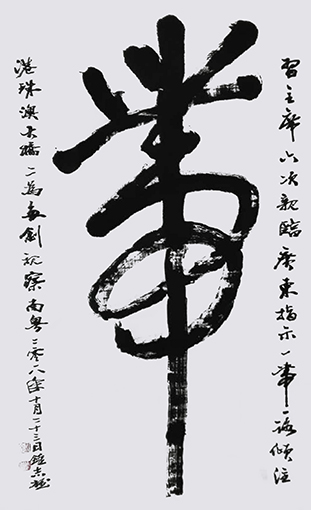 習主席六次親臨廣東指示一帶一路傾注
帶
港珠澳大橋二為創視察南粤二零一八年十月二十三日